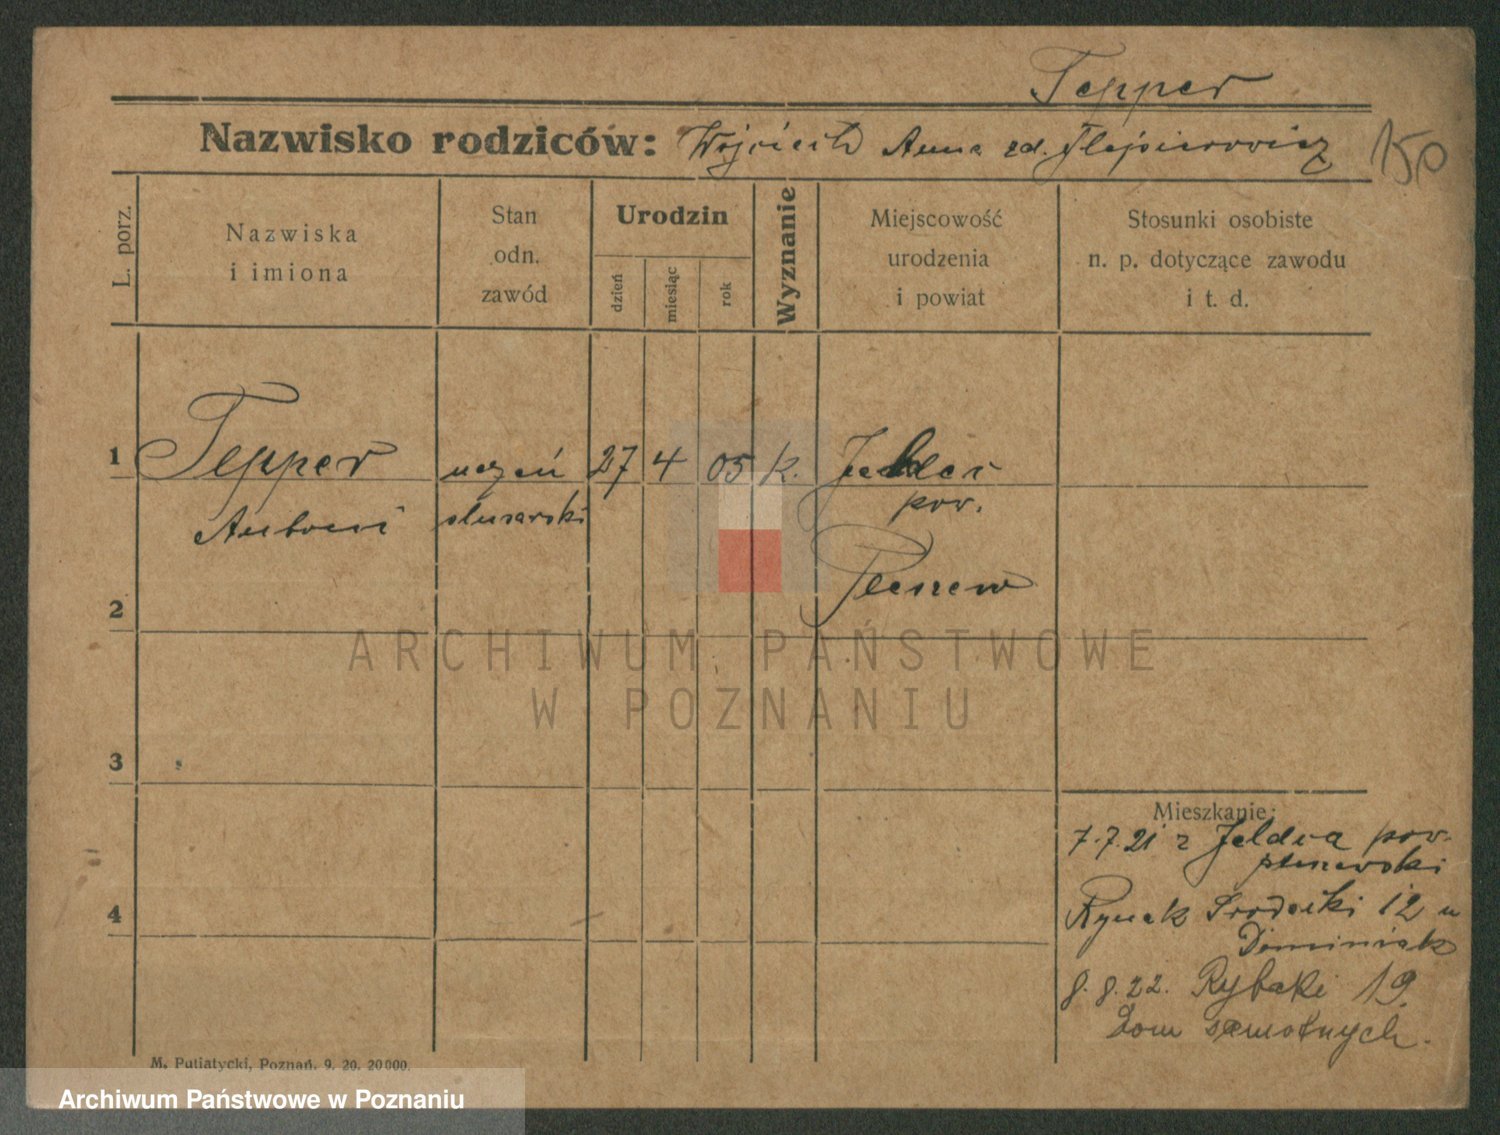 Tepper
Nazwisko rodziców: Wojciech Anna zd.
150
L. porz.
Nazwiska
i imiona
Stan
odn.
zawód
Urodzin
dzień
miesiąc
rok
Wyznanie
Miejscowość
urodzenia
i powiat
Stosunki osobiste
n. p. dotyczące zawodu
i t. d.
1 Tepper uczeń 27 4 05 k. Jedlec
Antoni ślusarski pow.
Pleszew
2
ARCHIWUM PAŃSTWOWE
W POZNANIU
3
Mieszkanie:
7.7.21 z pow.
pleszewski
4
Rynek Śródecki 12 u
Dominiak
8.8.22. Rybaki 19.
Dom samotnych.
M. Putiatycki, Poznań. 9. 20. 20000.
Archiwum Państwowe w Poznaniu